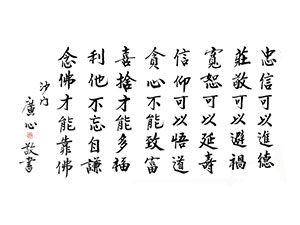 忠信可以進德
莊敬可以避禍
寬恕可以延壽
信仰可以悟道
貪心不能致富
喜捨才能多福
利他不忘自謙
念佛才能靠佛
沙門
廣心
敬書